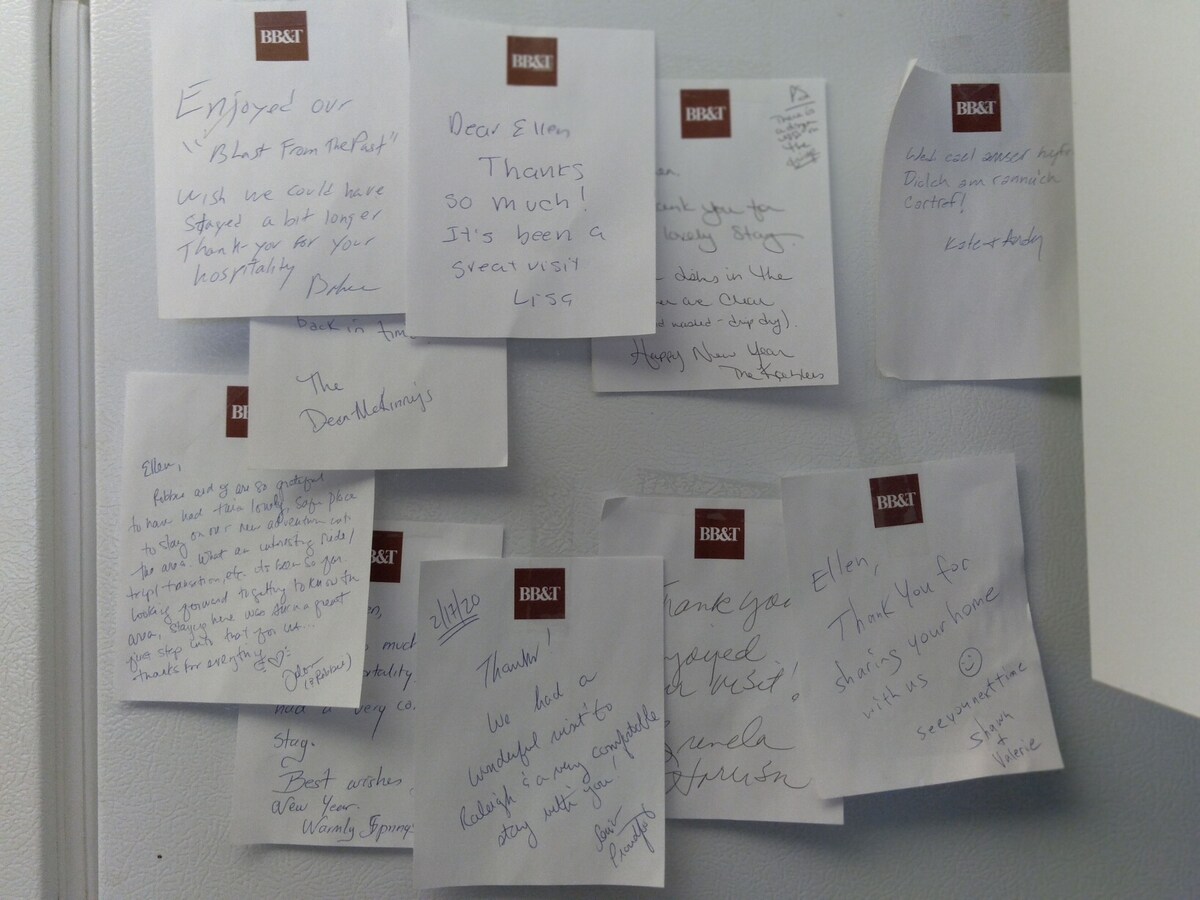 BB&T
Enjoyed our
"Blast From The Past"
Wish we could have
stayed a bit longer
Thank-you for your
hospitality
BB&T
Dear Ellen
Thanks
so much!
It's been a
great visit
Lisa
BB&T
There is
the
en
ank you for
lovely stay.
dishes in the
are clean
washed - drip dry).
Happy New Year
The
BB&T
Wedi cael amser
Diolch am rannu'ch
Cartref!
Kate + Andy
back in time
The
Dean-McKinneys
BB
Ellen,
Robbie and I are so grateful
to have had this lovely, safe place
to stay on our new adventure into
the area. What an interesting ride/
trip/transition, etc. its been so far
looking forward to getting to know the
area, staying here was a great
first step into that for us...
thanks for everything
(& Robbie)
&T
en,
much
tality
had a very co
stay.
Best wishes,
New Year.
Warmly
BB&T
2/17/20
Thanks!
We had a
wonderful visit to
Raleigh & a very comfortable
stay with you!
Proudfoot
BB&T
Thank you
njoyed
ur visit!
BB&T
Ellen,
Thank You for
sharing your home
with us
see you next time
Shawn
+
Valerie